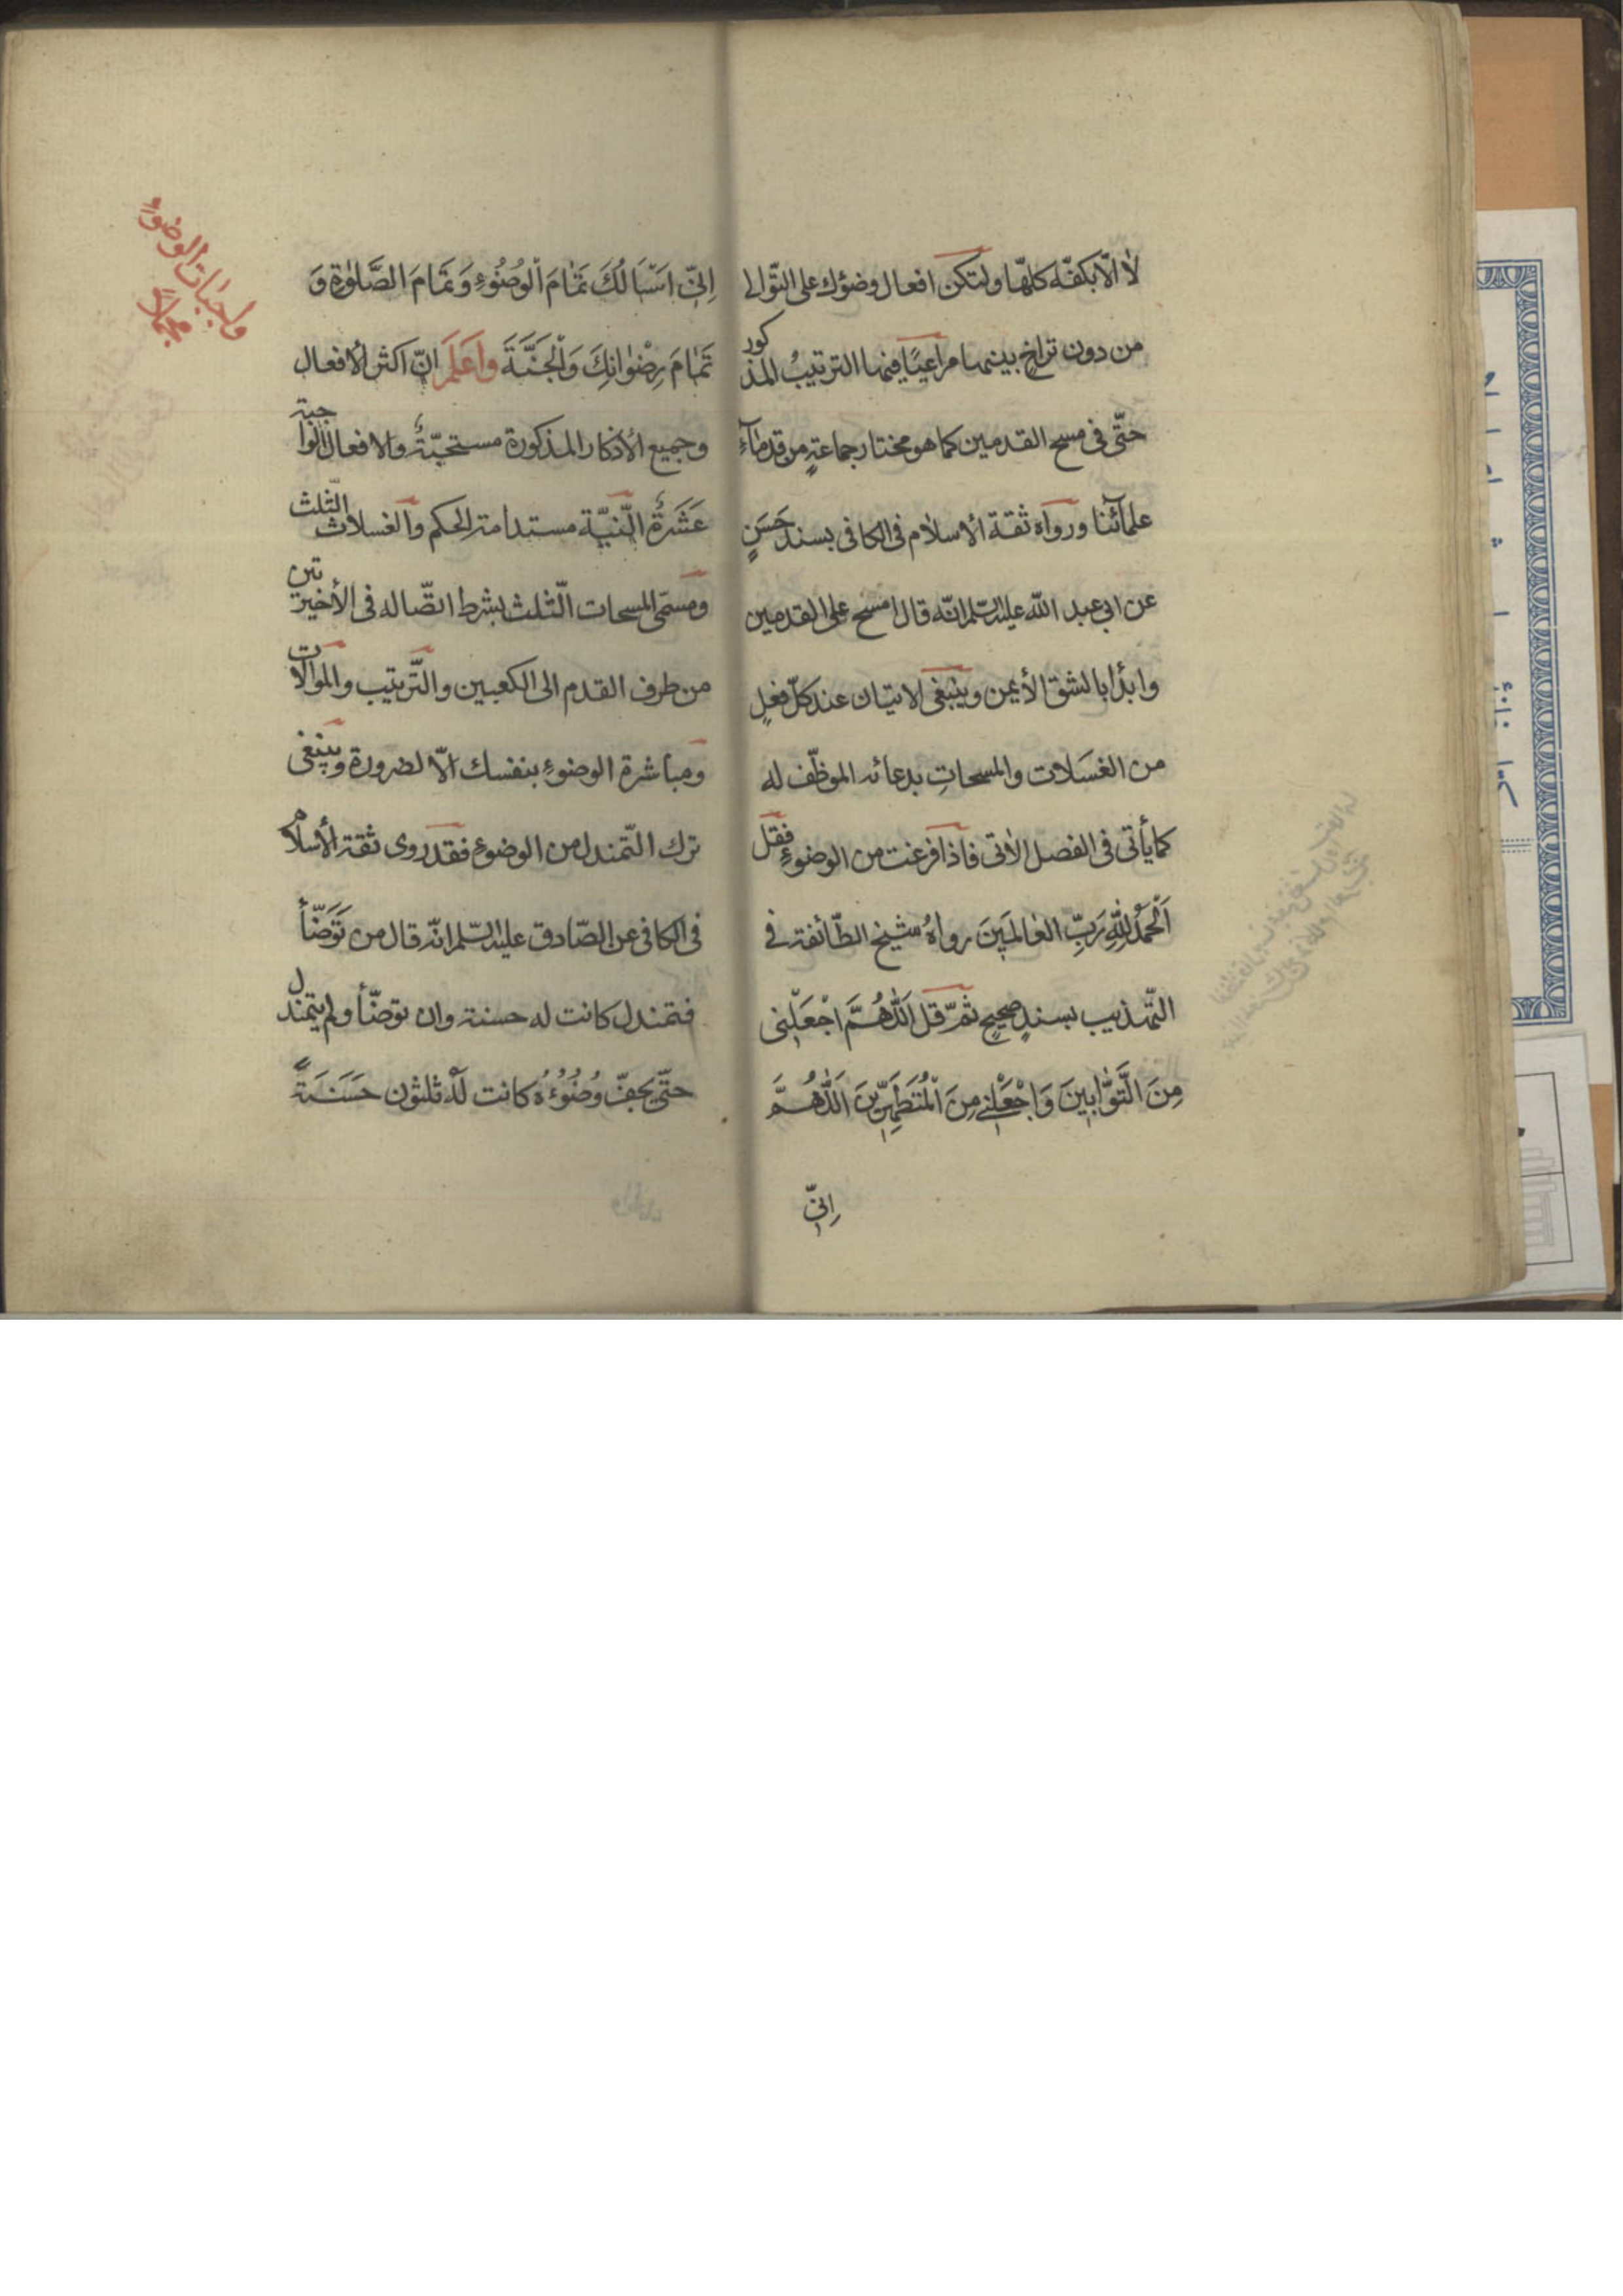 لا الّا بكفّه كلهّا ولتكن افعال وضوئك على التّوالى
من دون تراخ بينهما مراعيًا فيها الترتيبُ المذكور
حتّى فى مسح القدمين كما هو مختار جماعةٍ من قدماء
علمآئنا ورواه ثقة الاسلام فى الكافى بسند حَسَنٍ
عن ابى عبد الله عليه السّلم انّه قال امسح على القدمين
وابدأ بالشق الأيمن وينبغى الاتيان عند كلّ فعلٍ
من الغسَلات والمسحاتِ بدعائه الموظّف له
كما يأتى فى الفصل الاتى فاذا فرغت من الوضوءِ فقل
اَلْحَمْدُ لِلّٰهِ رَبِّ العٰالَمينَ رواهُ شيخ الطّائفة فى
التّهذيب بسندٍ صحيحٍ ثمّ قل اَللّٰهُمَّ اجْعَلْنى
مِنَ التَّوّٰابينَ وَاجْعَلْنى مِنَ الْمُتَطَهِّرينَ اَللّٰهُمَّ
اِنّى
اِنّى اَسْاَلُكَ تَمٰامَ الْوُضُوءِ وَتَمٰامَ الصَّلوٰةِ وَ
تَمٰامَ رِضْوٰانِكَ وَالْجَنَّةَ واعلم انّ اكثر الافعال
وجميع الأذكار المذكورة مستحبّةٌ والافعال الواجبة
عَشَرةٌ النّيّة مستدامة الحكم والغسلات الثّلث
ومسمّى المسحات الثّلث بشرط اتصّاله فى الأخيرتين
من طرف القدم الى الكعبين والتّرتيب والموالات
ومباشرة الوضوءِ بنفسك الّا لضرورة وينبغى
ترك التّمندل من الوضوء فقد روى ثقة الأسلام
فى الكافى عن الصّادق عليه السّلم انّه قال من تَوَضّأَ
فتمندل كانت له حسنة وان توضّأ ولم يتمندل
حتّى يجفّ وُضُوُءُهُ كانت لَهُ ثلثون حَسَنَةً
واجبات الوضوء
مجملاً